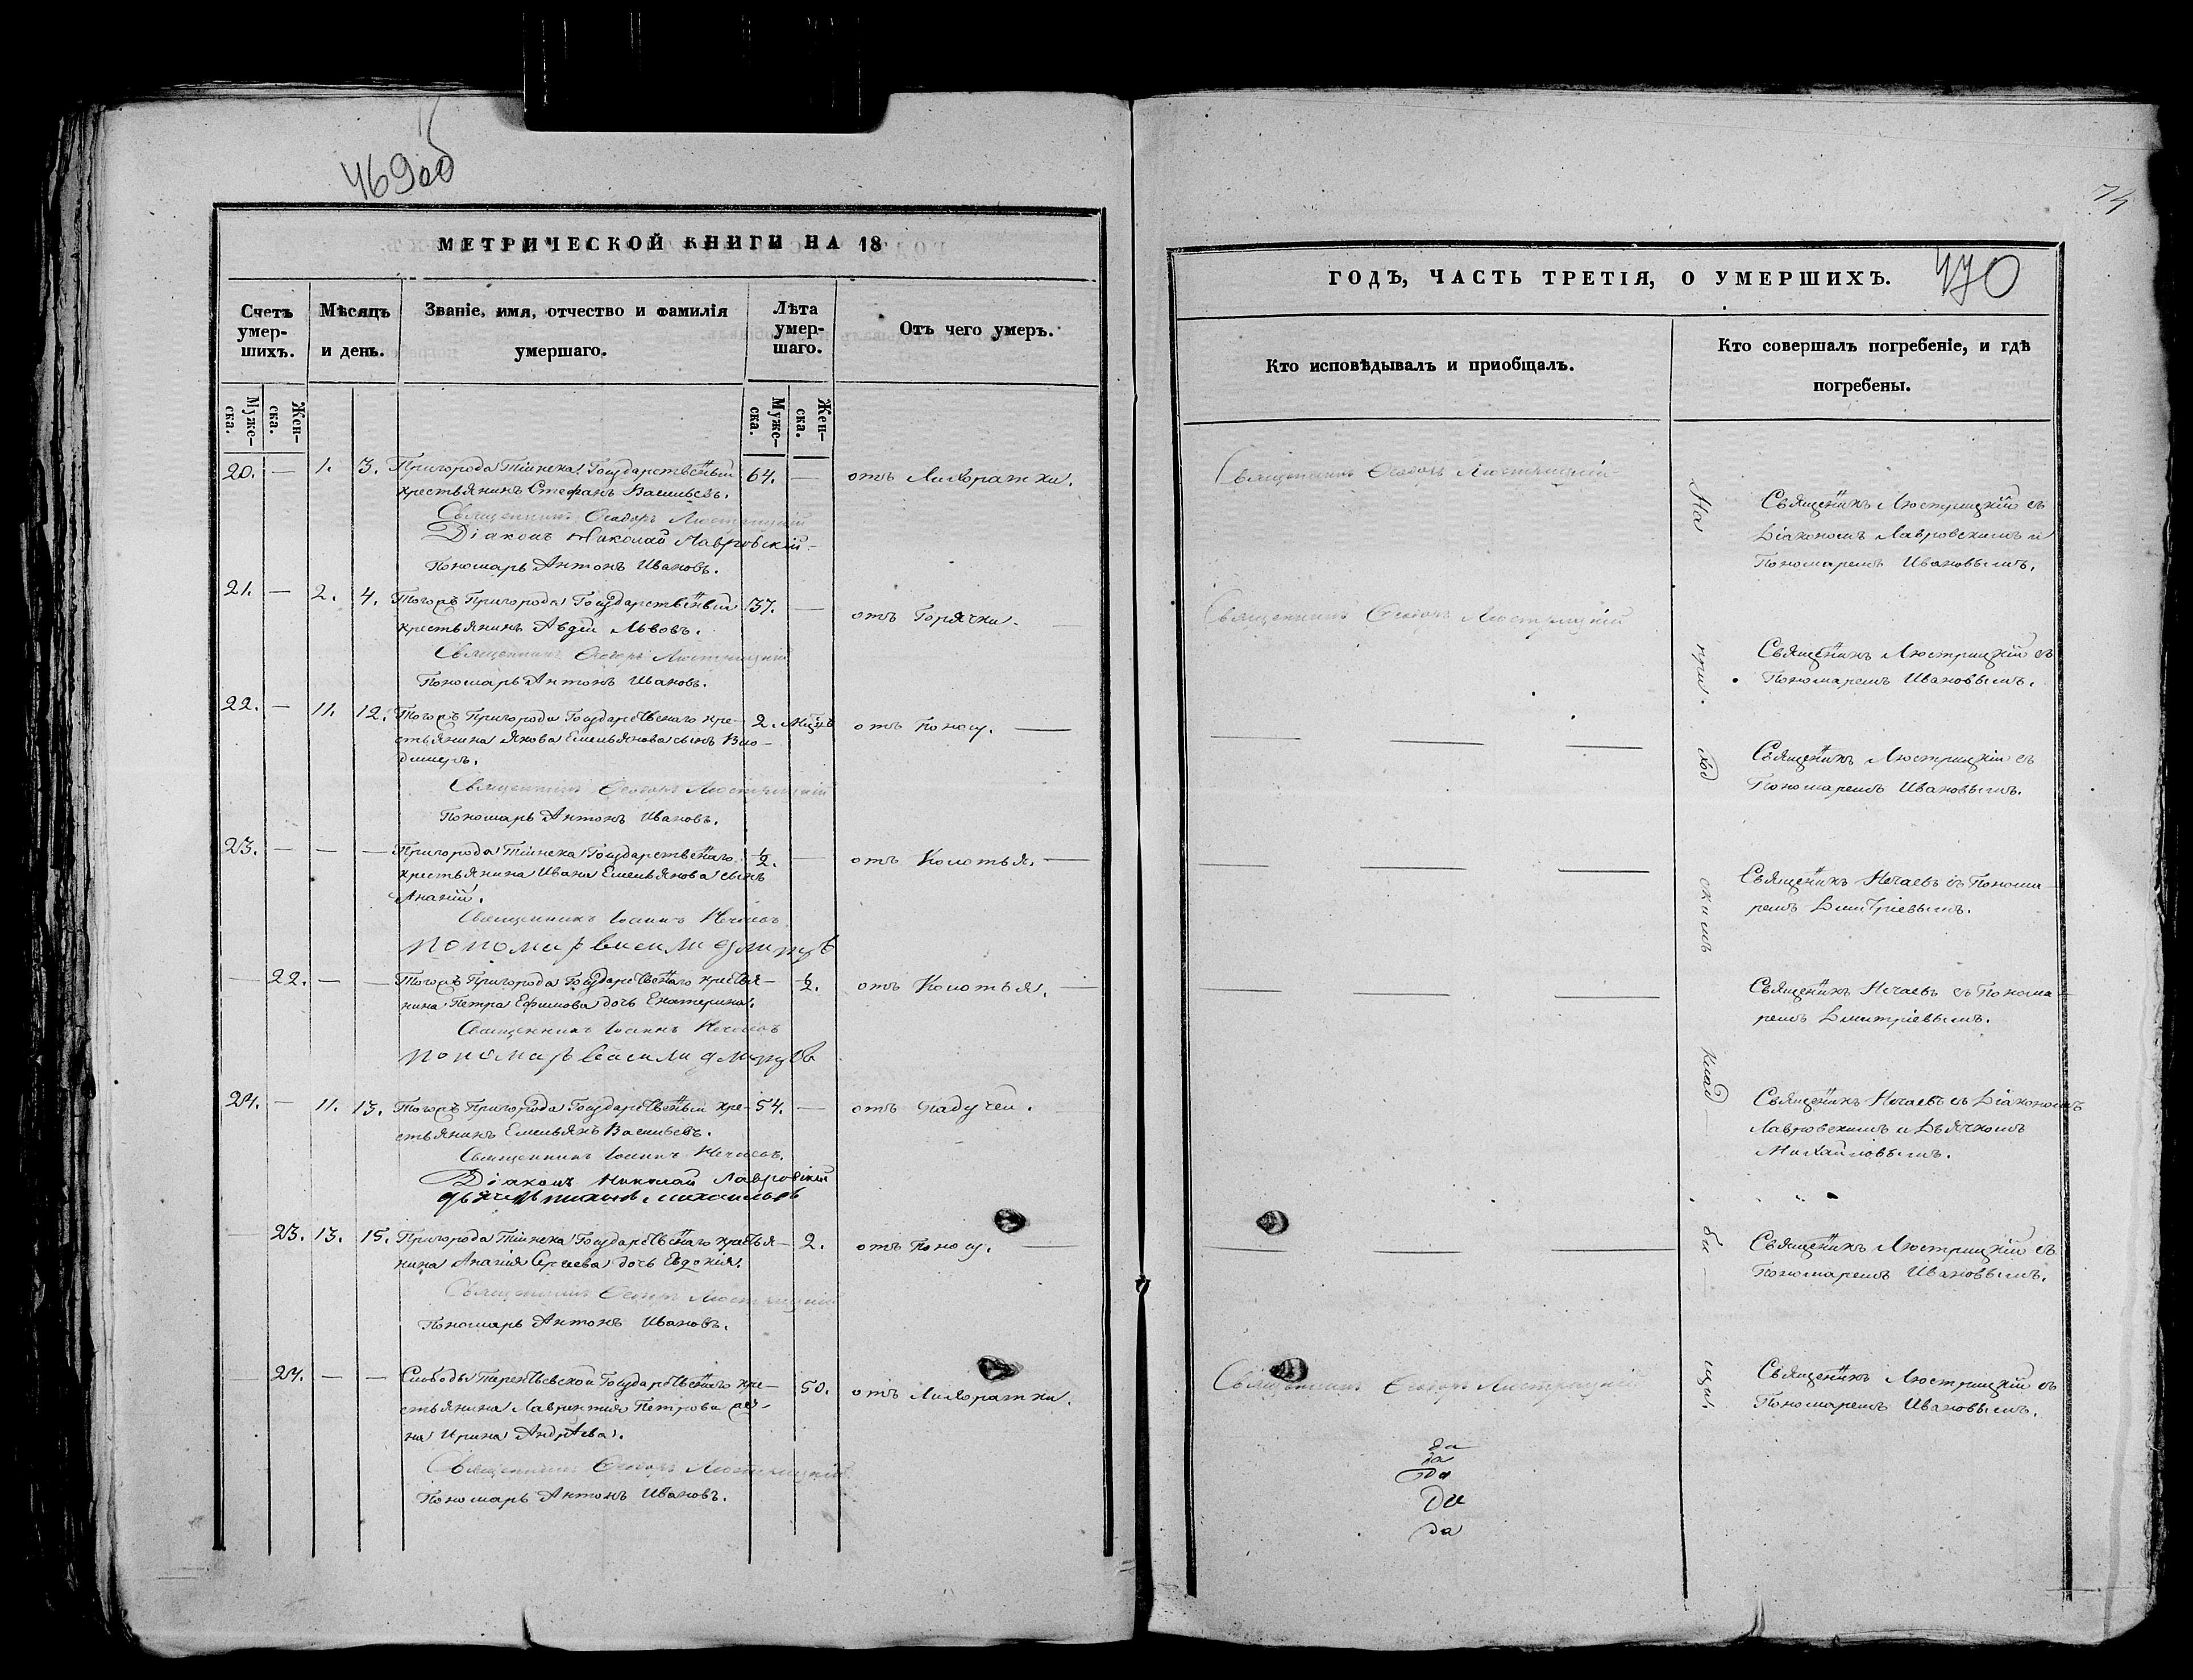 469об
МЕТРИЧЕСКОЙ КНИГИ НА 18
Счетъ умер-шихъ.
Мѣсяцъ и день.
Званіе, имя, отчество и фамилія умершаго.
Лѣта умер-шаго.
Отъ чего умеръ.
Муже-ска.
Жен-ска.
Муже-ска.
Жен-ска.
20. — 1. 3. Пригорода Тіинска Государственый 64. — отъ Лихоратки.
крестьянинъ Стефанъ Васильевъ.
Священникъ Ѳеодоръ Люстрицкій
Діаконъ Николай Лавровскій
Пономарь Антонъ Ивановъ.
21. — 2. 4. Тогожъ Пригорода Государственый 37. — отъ Горячки.
крестьянинъ Авдій Львовъ.
Священникъ Ѳеодоръ Люстрицкій
Пономарь Антонъ Ивановъ.
22. — 11. 12. Тогожъ Пригорода Государственаго кре- 2. мѣц. отъ Поносу. —
стьянина Якова Емельянова сынъ Вла-
димиръ.
Священникъ Ѳеодоръ Люстрицкій
Пономарь Антонъ Ивановъ.
23. — — — Пригорода Тіинска Государственаго ½. — отъ Колотья. —
крестьянина Ивана Емельянова сынъ
Ананій.
Священникъ Іоаннъ Нечаевъ
пономарь василий
— 22. — — Тогожъ Пригорода Государственаго крестья- ½. отъ Колотья. —
нина Петра Ефимова дочь Екатерина.
Священникъ Іоаннъ Нечаевъ
пономарь василий
24. — 11. 13. Тогожъ Пригорода Государственый кре- 54. — отъ Падучей.
стьянинъ Емельянъ Васильевъ.
Священникъ Іоаннъ Нечаевъ.
Діаконъ Николай Лавровскій
— 23. 13. 15. Пригорода Тіинска Государственаго крестья- 2. отъ Поносу. —
нина Ананія Сергеева дочь Евдокія.
Священникъ Ѳеодоръ Люстрицкій
Пономарь Антонъ Ивановъ.
— 24. — — Слободы Терентьевской Государственаго кре- 50. отъ Лихоратки.
стьянина Лаврентія Петрова же-
на Ирина Андрѣева.
Священникъ Ѳеодоръ Люстрицкій
Пономарь Антонъ Ивановъ.
74
ГОДЪ, ЧАСТЬ ТРЕТІЯ, О УМЕРШИХЪ.
470
Кто исповѣдывалъ и приобщалъ.
Кто совершалъ погребеніе, и гдѣ погребены.
Священникъ Ѳеодоръ Люстрицкій
Священикъ Люстрицкій съ
Діакономъ Лавровскимъ и
Пономаремъ Ивановымъ.
Священникъ Ѳеодоръ Люстрицкій
Священикъ Люстрицкій съ
Пономаремъ Ивановымъ.
Священикъ Люстрицкій съ
Пономаремъ Ивановымъ.
Священикъ Нечаевъ съ Понома-
ремъ Дмитріевымъ.
Священикъ Нечаевъ съ Понома-
ремъ Дмитріевымъ.
Священикъ Нечаевъ съ Діакономъ
Лавровскимъ и Дьячкомъ
Михайловымъ.
Священикъ Люстрицкій съ
Пономаремъ Ивановымъ.
Священникъ Ѳеодоръ Люстрицкій
Священикъ Люстрицкій съ
Пономаремъ Ивановымъ.
На при-ход скимъ клад — би — щи.
да
да
да
да
да